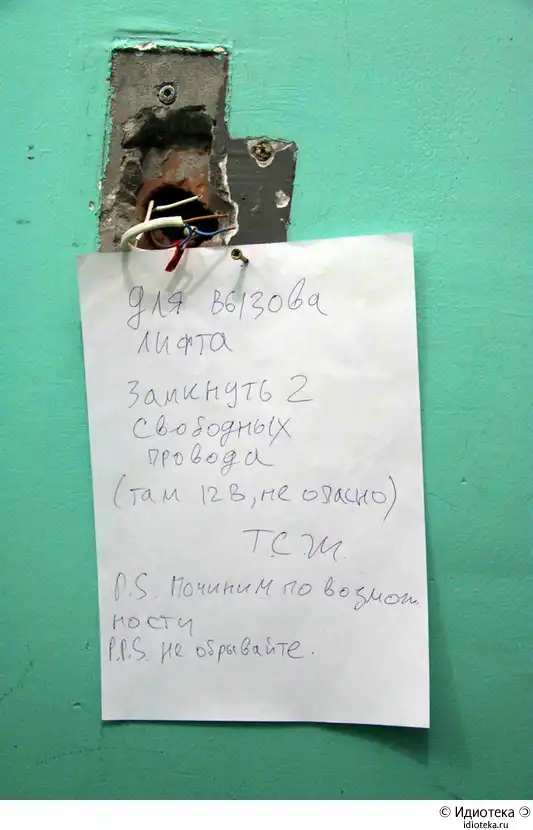 Для вызова
лифта
Замкнуть 2
свободных
провода
(там 12В, не опасно)
Т.С.Ж.
P.S. Починим по возмож
ности
P.P.S. не обрывайте.
© Идиотека
idioteka.ru